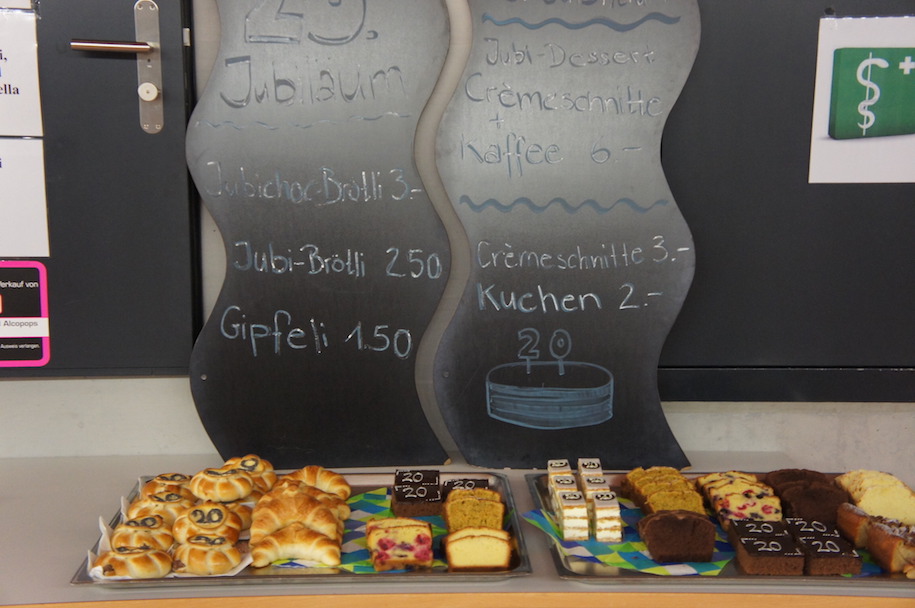 ella
erkauf von
Alcopops
Ausweis verlangen.
Jubiläum
Jubichoc-Brötli 3.-
Jubi-Brötli 2.50
Gipfeli 1.50
Jubi-Dessert
Crèmeschnitte
+
Kaffee 6.-
Crèmeschnitte 3.-
Kuchen 2.-
20
$+
20
20
20
20
20
20
20